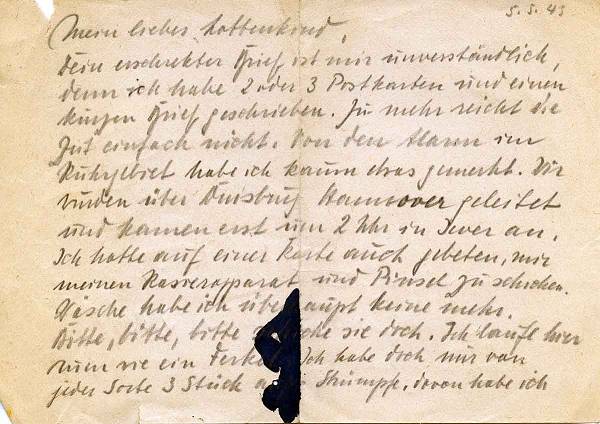 5.5.43
Mein liebes Lottenkind,
Dein erschrekter Brief ist mir unverständlich,
denn ich habe 2 oder 3 Postkarten und einen
kurzen Brief geschrieben. Zu mehr reicht die
Zeit einfach nicht. Von den Alarm im
Ruhrgebiet habe ich kaum etwas gemerkt. Wir
wurden über Duisburg Hannover geleitet
und kamen erst um 2 Uhr in Jever an.
Ich hatte auf einer Karte auch gebeten, mir
meinen Rasierapparat und Pinsel zu schicken.
Wäsche habe ich über aupt keine mehr.
Bitte, bitte, bitte sie doch. Ich laufe hier
rum wie ein Ich habe doch nur von
jeder Sorte 3 Stück Strümpfe, davon habe ich